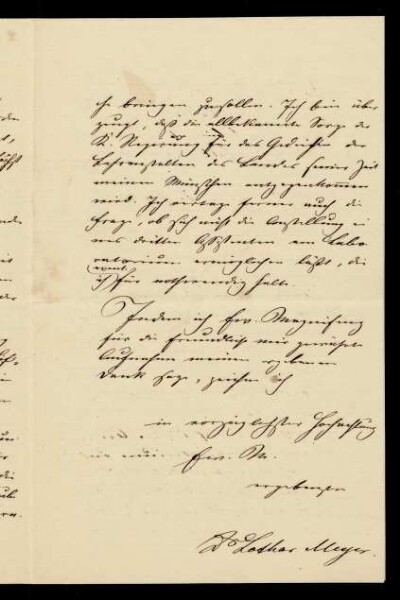 che bringen zu sollen. Ich bin über
zeugt, daß die allbekannte Sorge der
K. Regierung für das Gedeihen der
Lehranstalten des Landes seiner Zeit
meinen Wünschen entgegenkommen
wird. Ich erwäge ferner auch die
Frage, ob sich nicht die Anstellung ei
nes dritten Assistenten am Labo
ratorium ermöglichen läßt, die
ich für nothwendig halte.
Indem ich Ew.
für die freundliche mir gewährte
Aufnahme meinen ergebenen
Dank sage, zeichne ich
in vorzüglichster Hochachtung
Ew.
ergebenster
Dr Lothar Meyer.